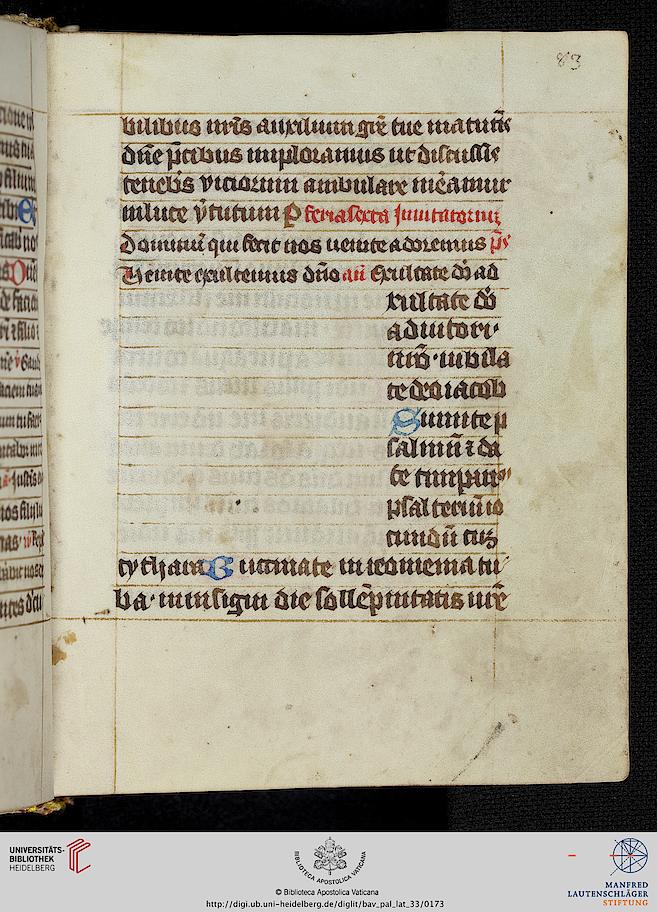 83
bilibus nr̄is auxilium gr̄e tue matutīs
dn̄e p̄cibus imploramus ut discussis
tenebris viciorum ambulare meamur
in luce v̄tutum P feria sexta Inuitatorium
Dominū qui fecit nos uenite adoremus p̄s
Venite exultemus dn̄o an̄ Exultate dō ad
xultate dō
adiutori
nrō · iubila
te deo iacob
Sumite p
salmū ⁊ da
te timpan
psalteriū io
cundū cuȝ
cythara Buccinate in neomenia tu
ba · in insigni die sollēpnitatis nr̄e
UNIVERSITÄTS-
BIBLIOTHEK
HEIDELBERG
BIBLIOTECA APOSTOLICA VATICANA
© Biblioteca Apostolica Vaticana
http://digi.ub.uni-heidelberg.de/diglit/bav_pal_lat_33/0173
MANFRED
LAUTENSCHLÄGER
STIFTUNG